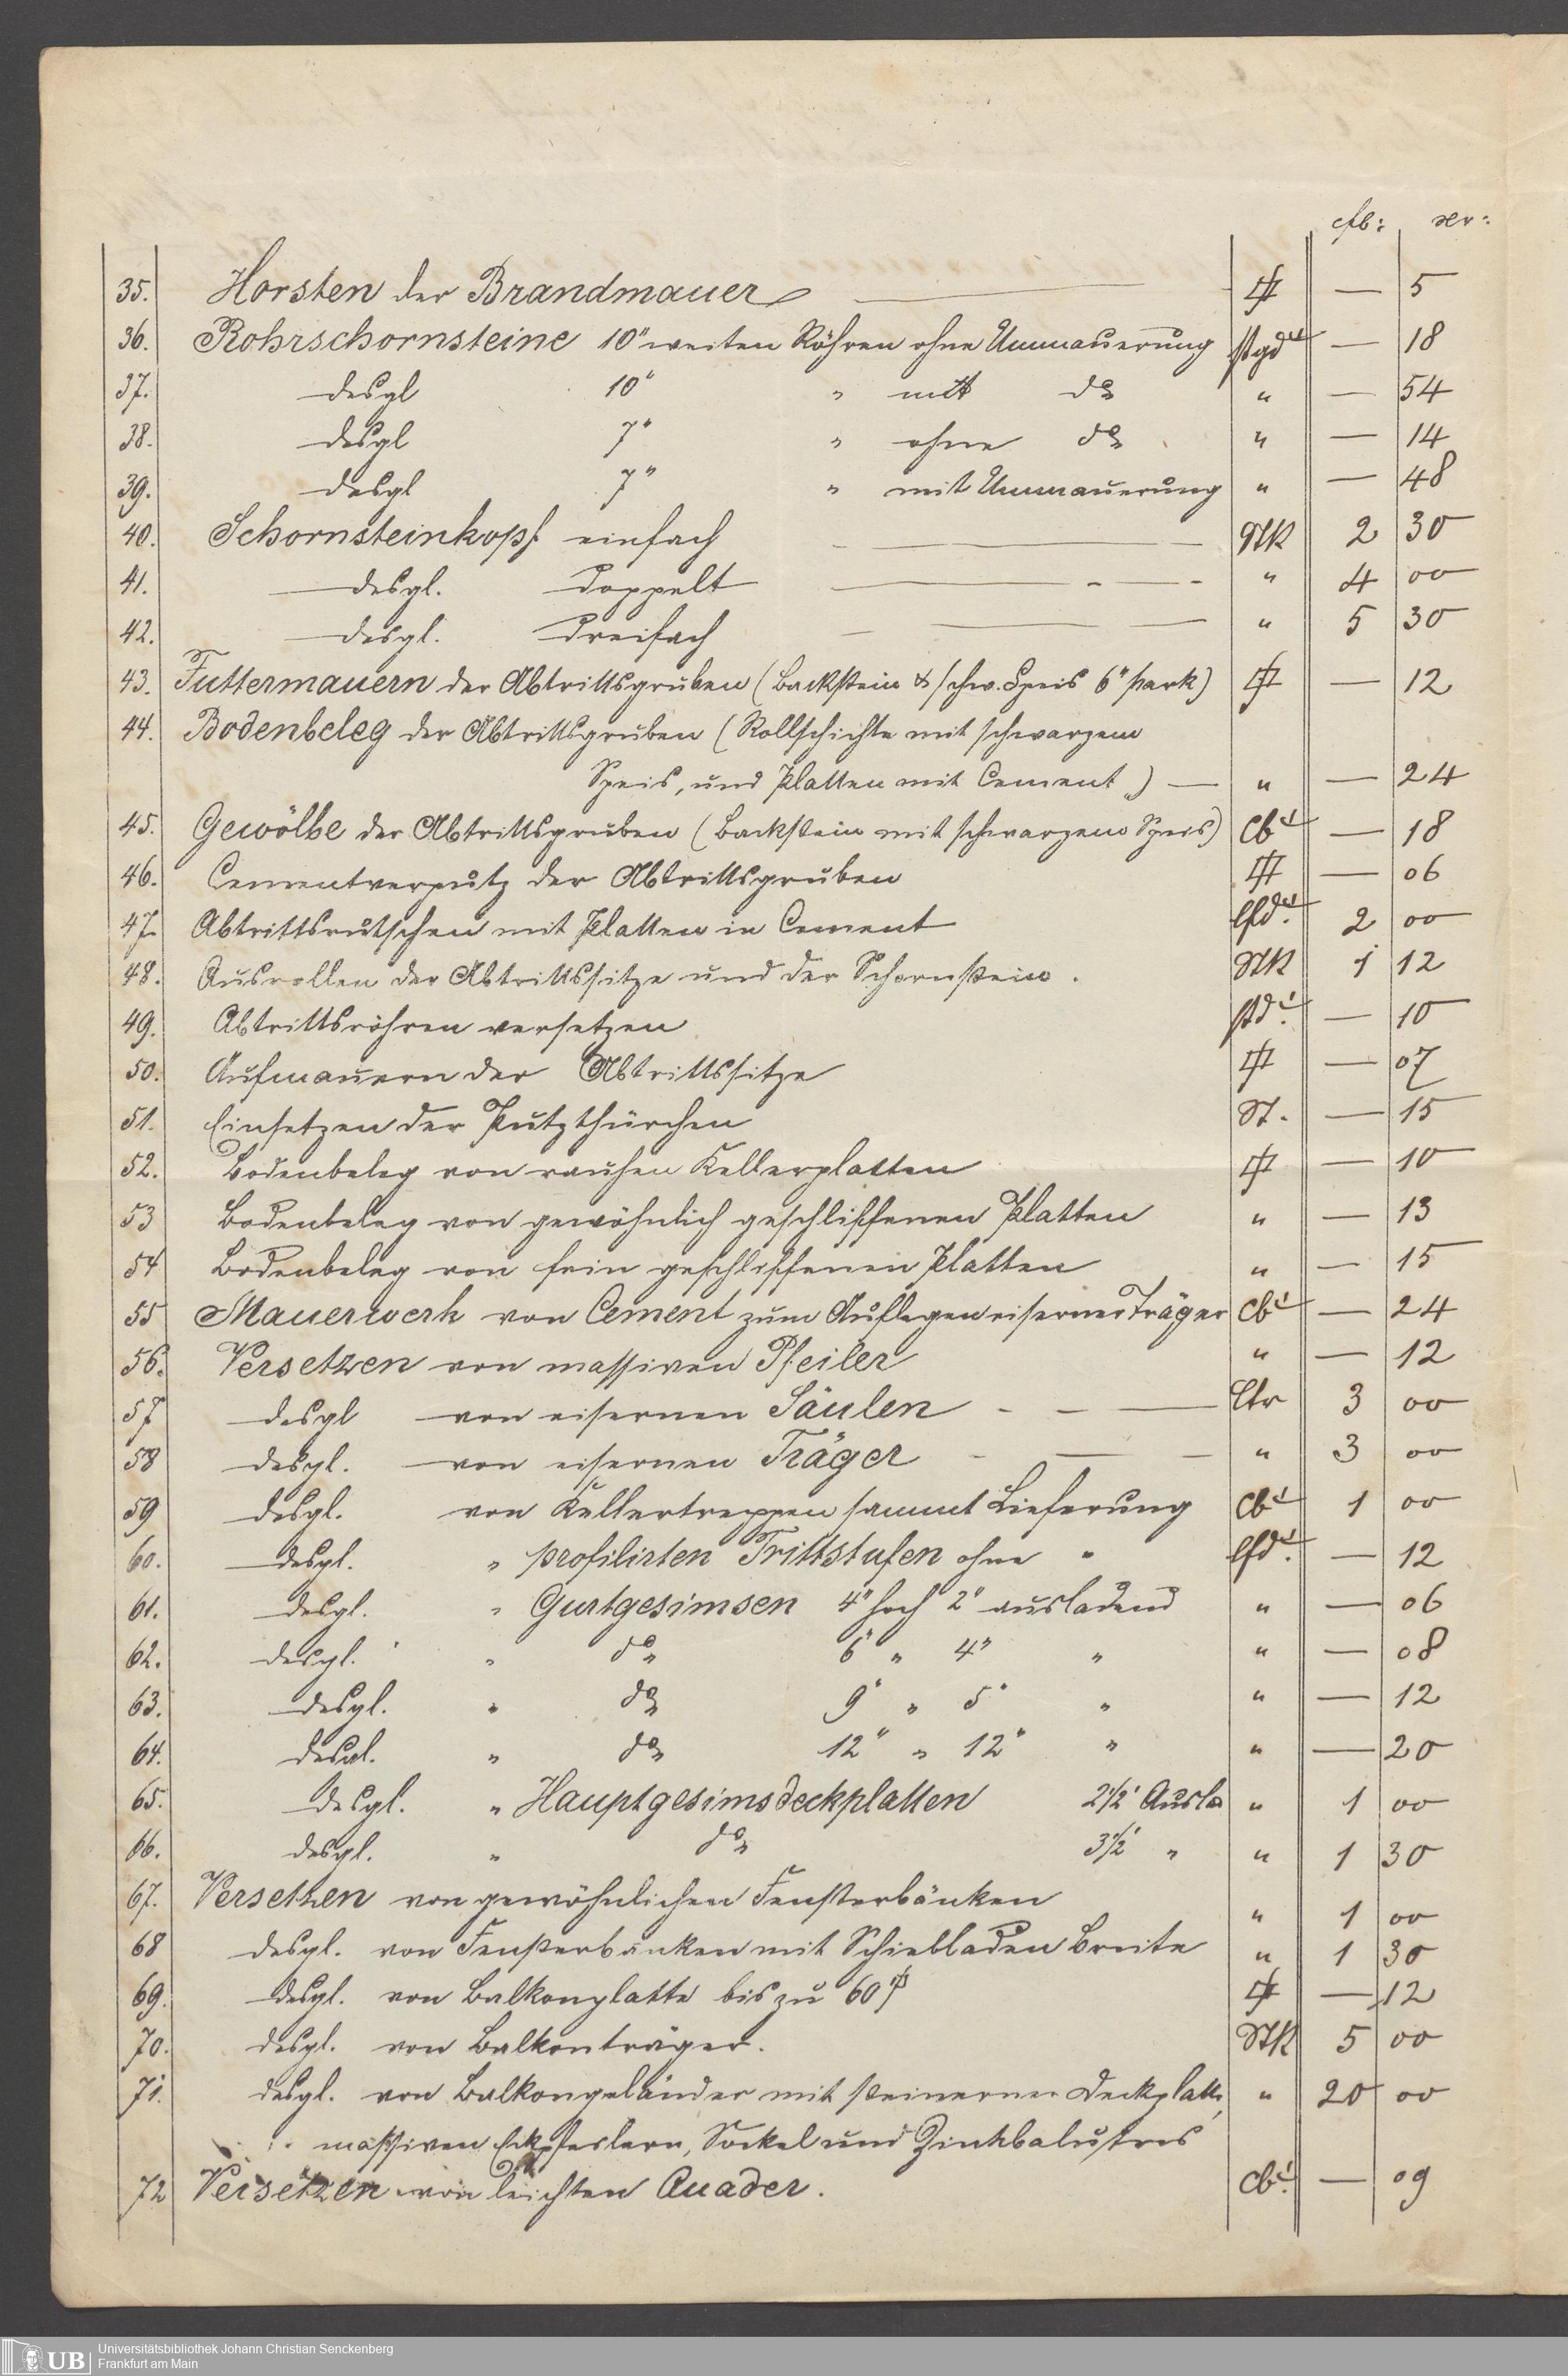 fl: xr:
35. Horsten der Brandmauer — — 5
36. Rohrschornsteine 10" weiten Röhren ohne Ummauerung stgd' — 18
37. desgl 10" " mit do " — 54
38. desgl 7" " ohne do " — 14
39. desgl 7" " mit Ummauerung " — 48
40. Schornsteinkopf einfach — Stk 2 30
41. desgl. doppelt — " 4 00
42. desgl. dreifach — " 5 30
43. Futtermauern der Abtrittsgruben (Backstein & schw. Speis 6" stark) □' — 12
44. Bodenbeleg der Abtrittsgruben (Rollschichte mit schwarzem
Speis, und Platten mit Cement) — " — 24
45. Gewölbe der Abtrittsgruben (Backstein mit schwarzem Speis) Cb' — 18
46. Cementverputz der Abtrittsgruben □' — 06
47. Abtrittsrutschen mit Platten in Cement lfd'. 2 00
48. Ausrollen der Abtrittssitze und der Schornstein. Stk 1 12
49. Abtrittsröhren versetzen std'. — 10
50. Aufmauern der Abtrittssitze □' — 07
51. Einsetzen der Putzthürchen St. — 15
52. Bodenbeleg von rauhen Kellerplatten □' — 10
53 Bodenbeleg von gewöhnlich geschliffenen Platten " — 13
54 Bodenbeleg von fein geschliffenen Platten " — 15
55 Mauerwerk von Cement zum Auflegen eiserner Träger Cb' — 24
56. Versetzen von massiven Pfeiler " — 12
57 desgl von eisernen Säulen — Ctr 3 00
58 desgl. von eisernen Träger — " 3 00
59 desgl. von Kellertreppen sammt Lieferung Cb' 1 00
60. desgl. " profilirten Trittstufen ohne " lfd'. — 12
61. desgl. " Gurtgesimsen 4" hoch 2" ausladend " — 06
62. desgl. " do 6" " 4" " " — 08
63. desgl. " do 9" " 5" " " — 12
64. desgl. " do 12" " 12" " " — 20
65. desgl. " Hauptgesimsdeckplatten 2 1/2' Ausla " 1 00
66. desgl. " do 3 1/2' " " 1 30
67. Versetzen von gewöhnlichen Fensterbänken " 1 00
68 desgl. von Fensterbänken mit Schiebladen Breite " 1 30
69. desgl. von Balkonplatte bis zu 60 □' □' — 12
70. desgl. von Balkonträger. Stk 5 00
71. desgl. von Balkongeländer mit steinerner Deckplatte, " 20 00
massiven Eckpfeilern, Sockel und Zinkbalustres
72 Versetzen von leichten Quader. Cb'. — 09
UB Universitätsbibliothek Johann Christian Senckenberg
Frankfurt am Main